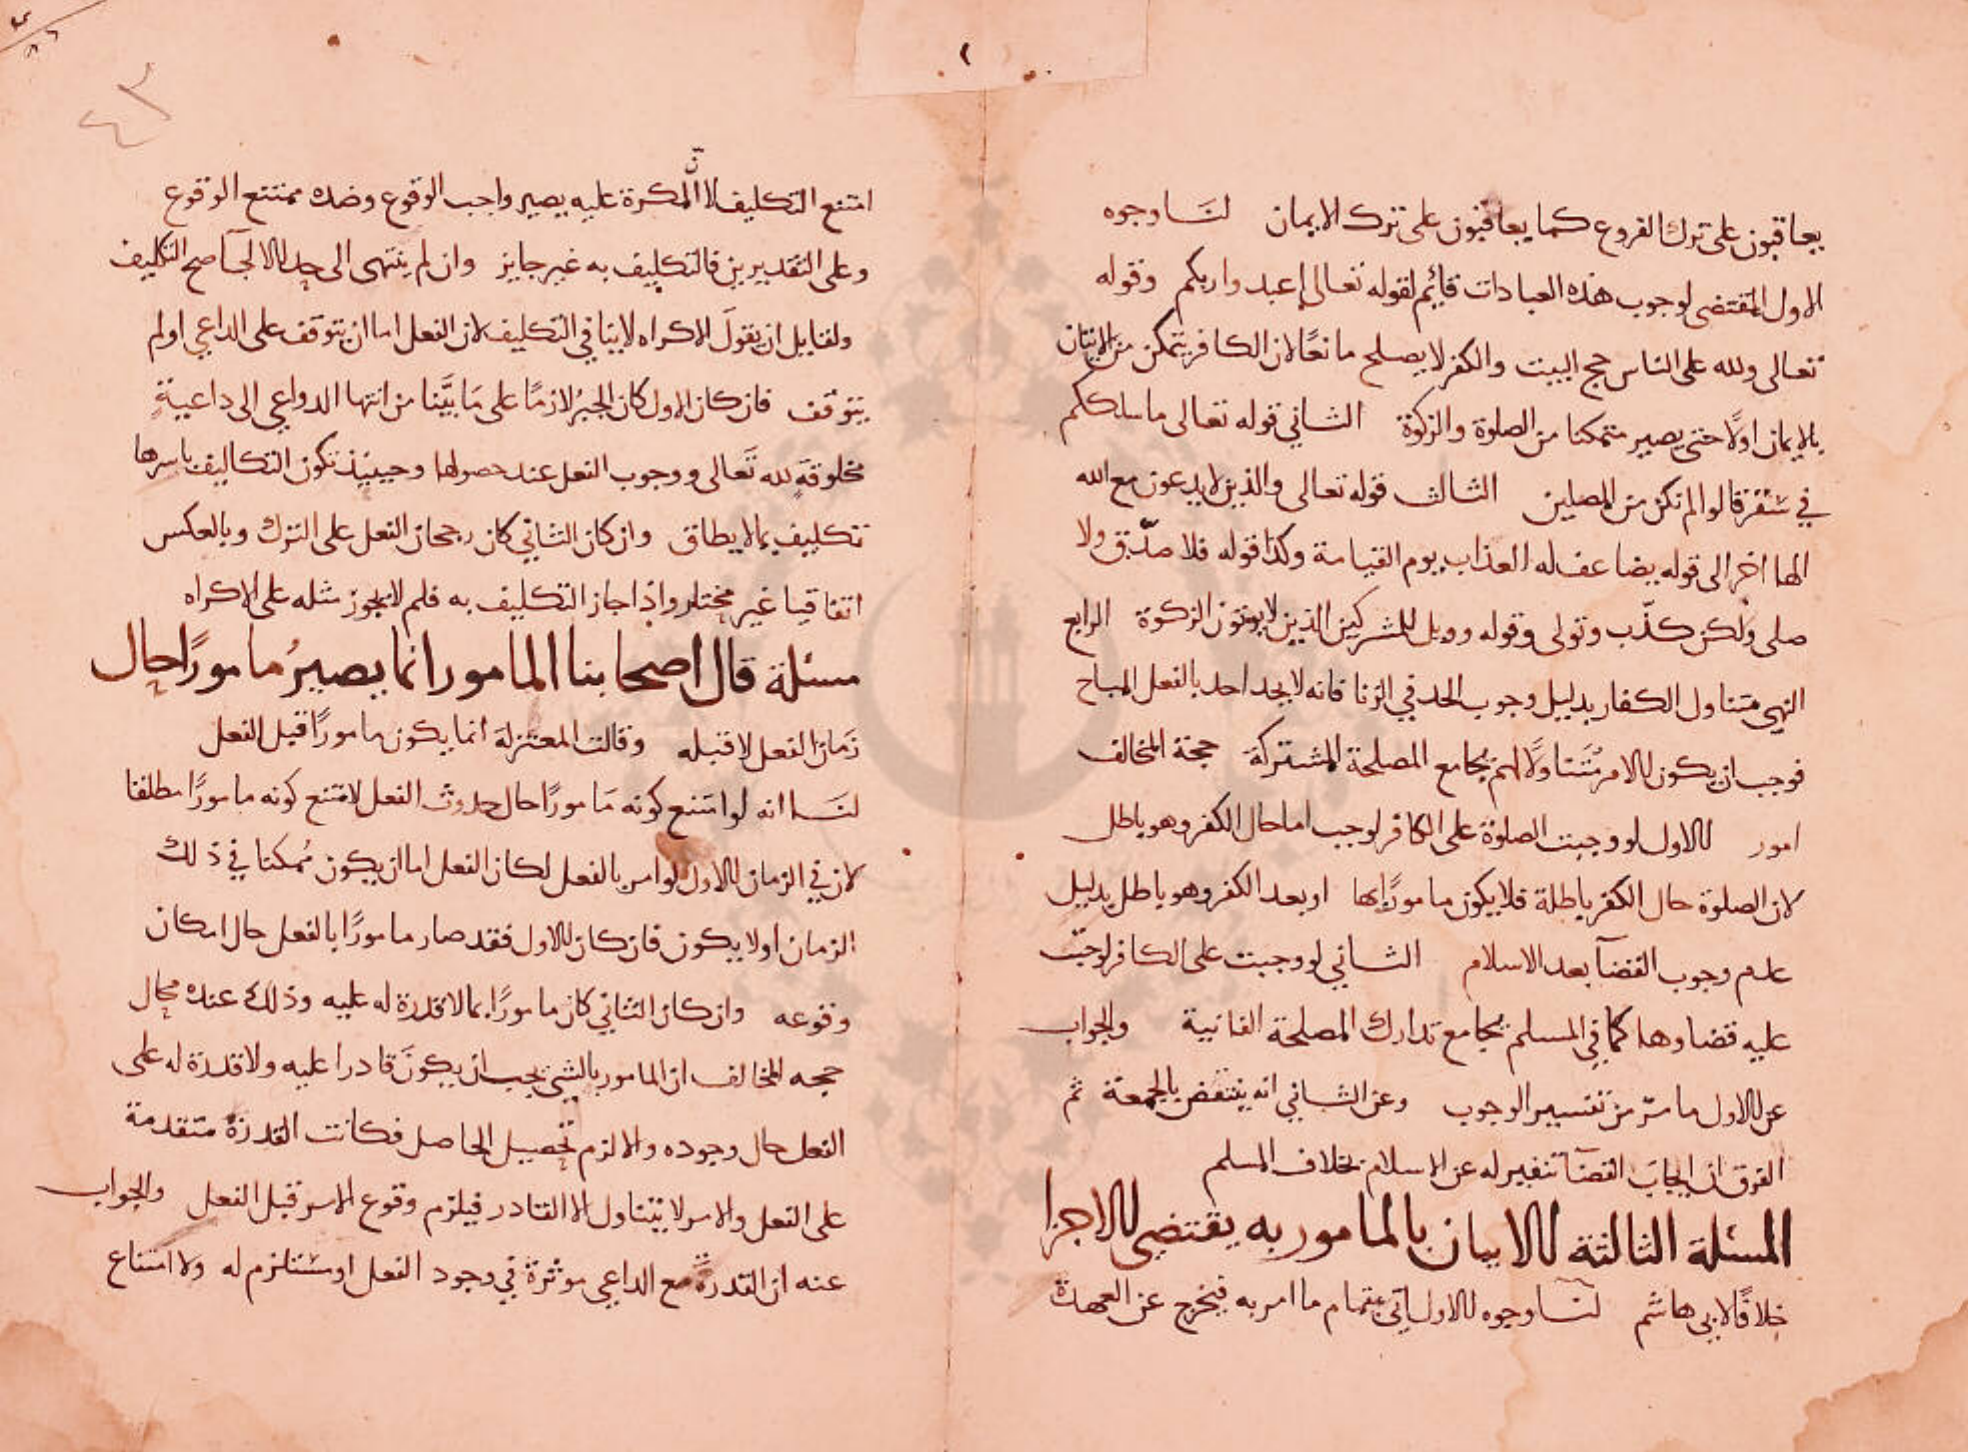 يعاقبون على ترك الفروع كما يعاقبون على ترك الايمان لنا وجوه
الاول المقتضى لوجوب هذه العبادات قايم لقوله تعالى اعبدوا ربكم وقوله
تعالى ولله على الناس حج البيت والكفر لا يصلح مانعًا لان الكافر يتمكن من الاتيان
بالايمان اولًا حتى يصير متمكنا من الصلوة والزكوة الثاني قوله تعالى ما سلككم
في سَقَر قالوا لم نكن من المصلين الثالث قوله تعالى والذين لا يدعون مع الله
الها اخر الى قوله يضاعف له العذاب يوم القيامة وكذا قوله فلا صدّق ولا
صلى ولكن كذّب وتولى وقوله وويل للمشركين الذين لا يوتون الزكوة الرابع
النهي متناول الكفار بدليل وجوب الحد في الزنا فانه لا يحد احد بالفعل المباح
فوجب ان يكون الامر مُتَناولًا لهم بجامع المصلحة المشتركة حجة المخالف
امور الاول لو وجبت الصلوة على الكافر لوجب اما حال الكفر وهو باطل
لان الصلوة حال الكفر باطلة فلا يكون مامورًا بها او بعد الكفر وهو باطل بدليل
عدم وجوب القضآ بعد الاسلام الثاني لو وجبت على الكافر لوجبت
عليه قضاوها كما في المسلم بجامع تدارك المصلحة الفانية والجواب
عن الاول ما مرّ من تفسير الوجوب وعن الثاني انه ينتقض بالجمعة ثم
الفرق ان ايجابَ القضآ تنفير له عن الاسلام بخلاف المسلم
المسئلة الثالثة الاتيان بالمامور به يقتضي الاجزا
خلافًا لابي هاشم لنا وجوه الاول اتى بتمام ما امر به فيخرج عن العهدة
٤٣
امتنع التكليف لانّ المكره عليه يصير واجب الوقوع وضده ممتنع الوقوع
وعلى التقديرين فالتكليف به غير جايز وان لم ينتهى الى حد الالجآ صح التكليف
ولقايل ان يقولَ الاكراه لا ينافي التكليف لان الفعل اما ان يتوقف على الداعي او لم
يتوقف فان كان الاول كان الجبرُ لازمًا على مَا بيَّنا من انتها الدواعي الى داعيةٍ
مخلوقةٍ لله تَعالى ووجوب الفعل عند حصولها وحينيذ تكون التكاليف باسرها
تكليف بما لا يطاق وان كان الثاني كان رجحان الفعل على الترك وبالعكس
اتفاقيا غير مختار واذا جاز التكليف به فلم لا يجوز مثله على الاكراه
مسئلة قال اصحابنا المامور انما يصيرُ مامورًا حال
زَمان الفعل لا قبله وقالت المعتزلة انما يكون مامورًا قبل الفعل
لنا انه لو امتنع كونه مَامورًا حال حدوث الفعل لامتنع كونه مامورًا مطلقا
لان في الزمان الاول لو امر بالفعل لكان الفعل اما ان يكون مُمكنا في ذلك
الزمان او لا يكون فان كان الاول فقد صار مامورًا بالفعل حال امكان
وقوعه وان كان الثاني كان مامورًا بما لا قدرة له عليه وذلك عنده محال
حجه المخالف ان المامور بالشي يجب ان يكونَ قادرا عليه ولا قدرة له على
الفعل حال وجوده والا لزم تحصيل الحاصل فكانت القدرة متقدمة
على الفعل والامر لا يتناول الا القادر فيلزم وقوع الامر قبل الفعل والجواب
عنه ان القدرة مع الداعي موثرة في وجود الفعل او مستلزم له ولا امتناع